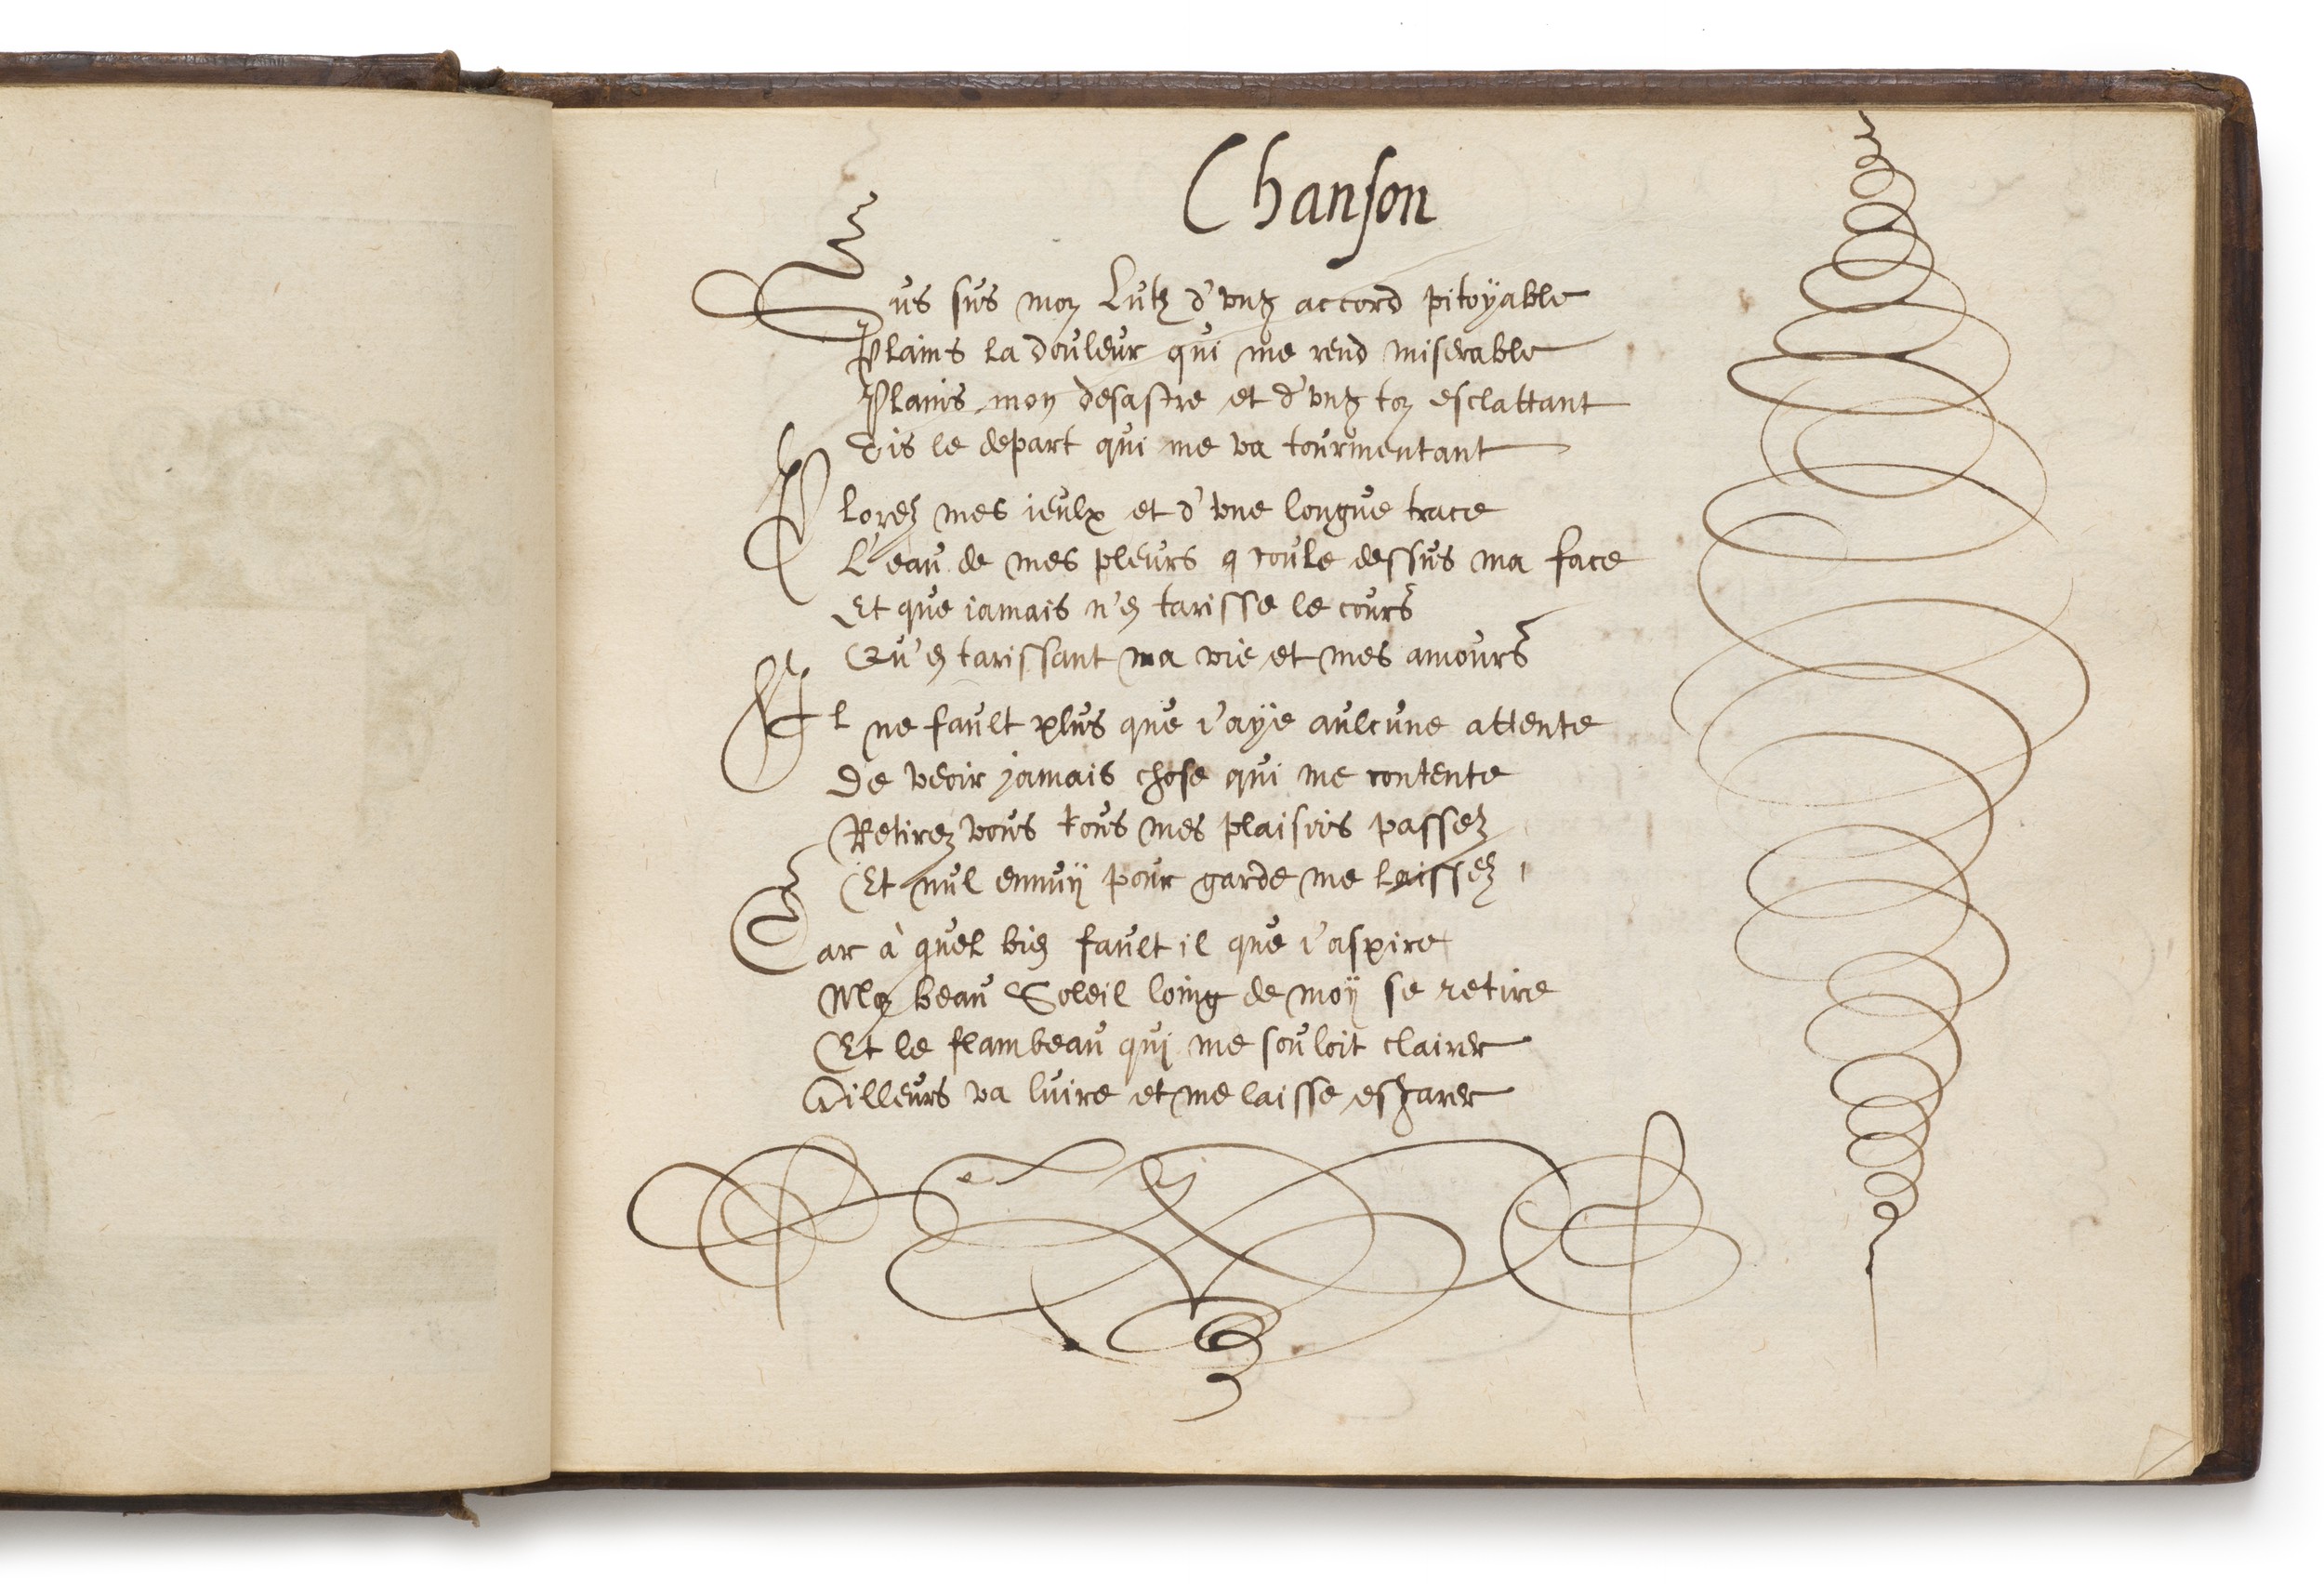 Chanson
Sus sus mon Lutz d'ung accord pitoÿable
Plains la douleur qui me rend miserable
Plains mon desastre et d'ung ton esclattant
Dis le depart qui me va tourmentant
Plorez mes ieulx et d'une longue trace
L'eau de mes pleurs q coule dessus ma face
Et que iamais n'en tarisse le cours
Qu'en tarissant ma vie et mes amours
Il ne fault plus que i'aÿe aulcune attente
De veoir jamais chose qui me contente
Retirez vous tous mes plaisirs passez
Et nul ennuÿ pour garde me laissez
Car à quel bien fault il que i'aspire
Mon beau Soleil loing de moÿ se retire
Et le flambeau qui me souloit clairer
Ailleurs va luire et me laisse esgarer